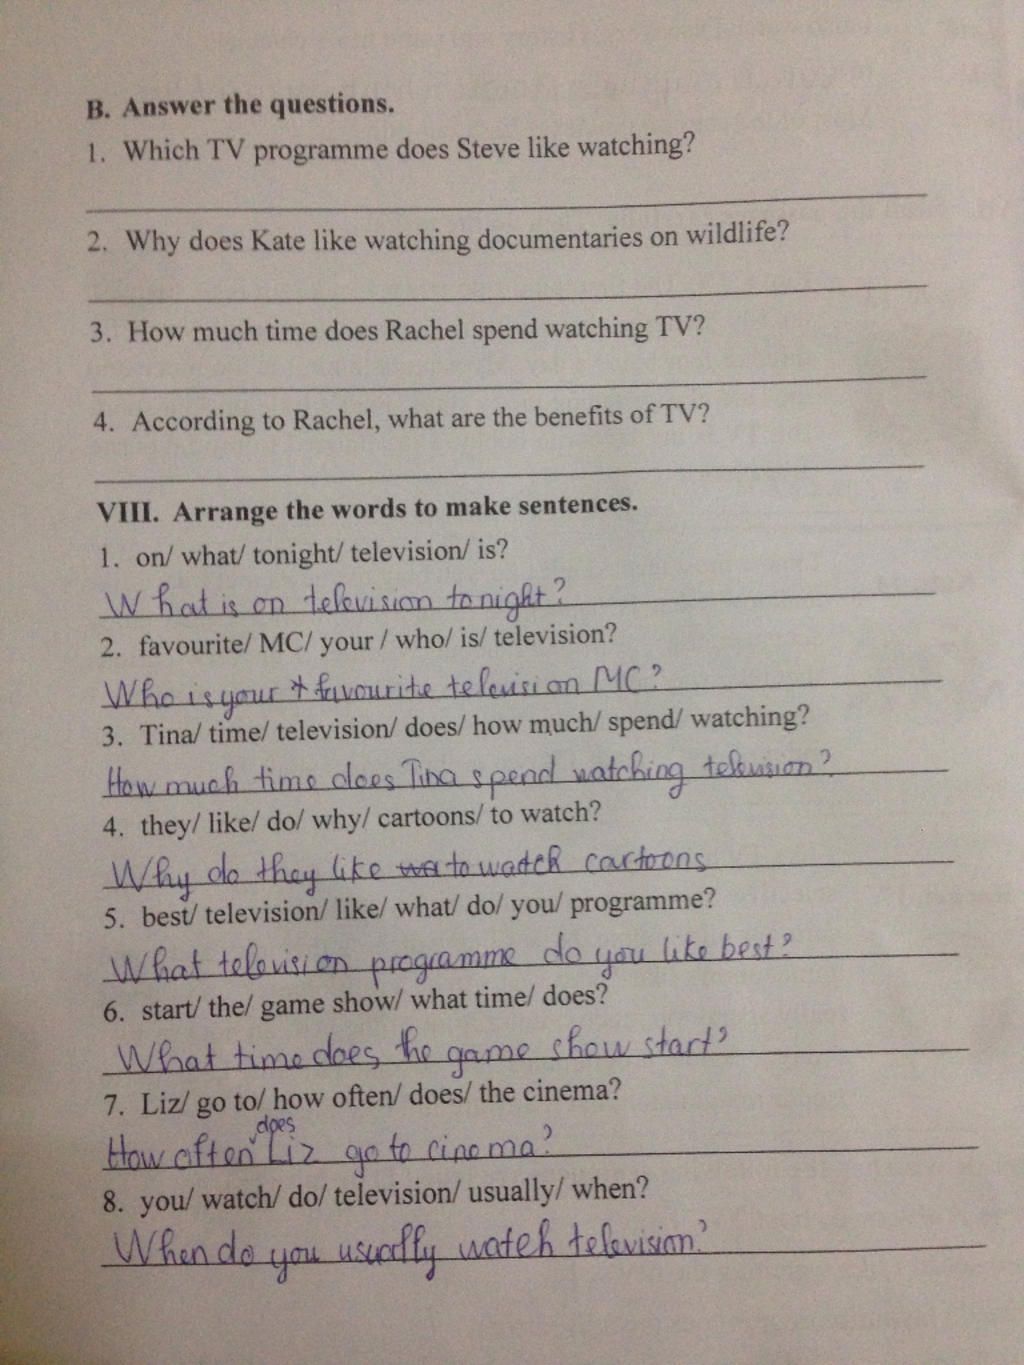 B. Answer the questions.
1. Which TV programme does Steve like watching?
2. Why does Kate like watching documentaries on wildlife?
3. How much time does Rachel spend watching TV?
4. According to Rachel, what are the benefits of TV?
VIII. Arrange the words to make sentences.
1. on/ what/ tonight/ television/ is?
What is on television tonight?
2. favourite/ MC/ your / who/ is/ television?
Who is your favourite television MC?
3. Tina/ time/ television/ does/ how much/ spend/ watching?
How much time does Tina spend watching television?
4. they/ like/ do/ why/ cartoons/ to watch?
Why do they like wa to watch cartoons
5. best/ television/ like/ what/ do/ you/ programme?
What television programme do you like best?
6. start/ the/ game show/ what time/ does?
What time does the game show start?
7. Liz/ go to/ how often/ does/ the cinema?
How often does Liz go to cinema?
8. you/ watch/ do/ television/ usually/ when?
When do you usually watch television?